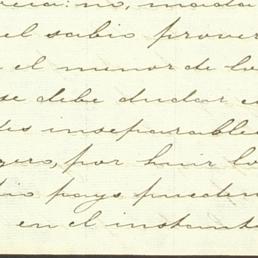 no, nada
el sabio prover
el menor de lo
se debe dudar e
des inseparables
pero, por huir lo
pays pueden
en el instante